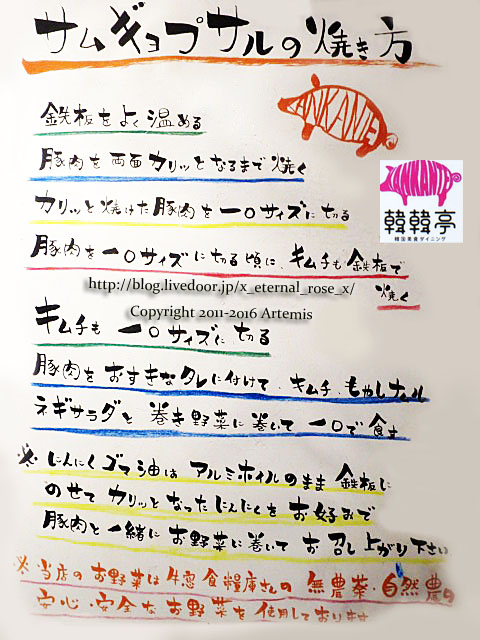 サムギョプサルの焼き方
鉄板をよく温める
ZANKANTEI
豚肉を両面カリッとなるまで焼く
ZANKANTEI
カリッと焼けた豚肉を一口サイズに切る
韓韓亭
韓国美食ダイニング
豚肉を一口サイズに切る頃に、キムチも鉄板で
焼く
http://blog.livedoor.jp/x_eternal_rose_x/
Copyright 2011-2016 Artemis
キムチも一口サイズに切る
豚肉をおすきなタレに付けて、キムチ、もやしナムル
ネギサラダと巻き野菜に巻いて一口で食す
※にんにくゴマ油はアルミホイルのまま鉄板に
のせてカリッとなったにんにくをお好みで
豚肉と一緒にお野菜に巻いてお召し上がり下さい
※当店のお野菜は 食糧庫さんの無農薬・自然農の
安心・安全なお野菜を使用しております